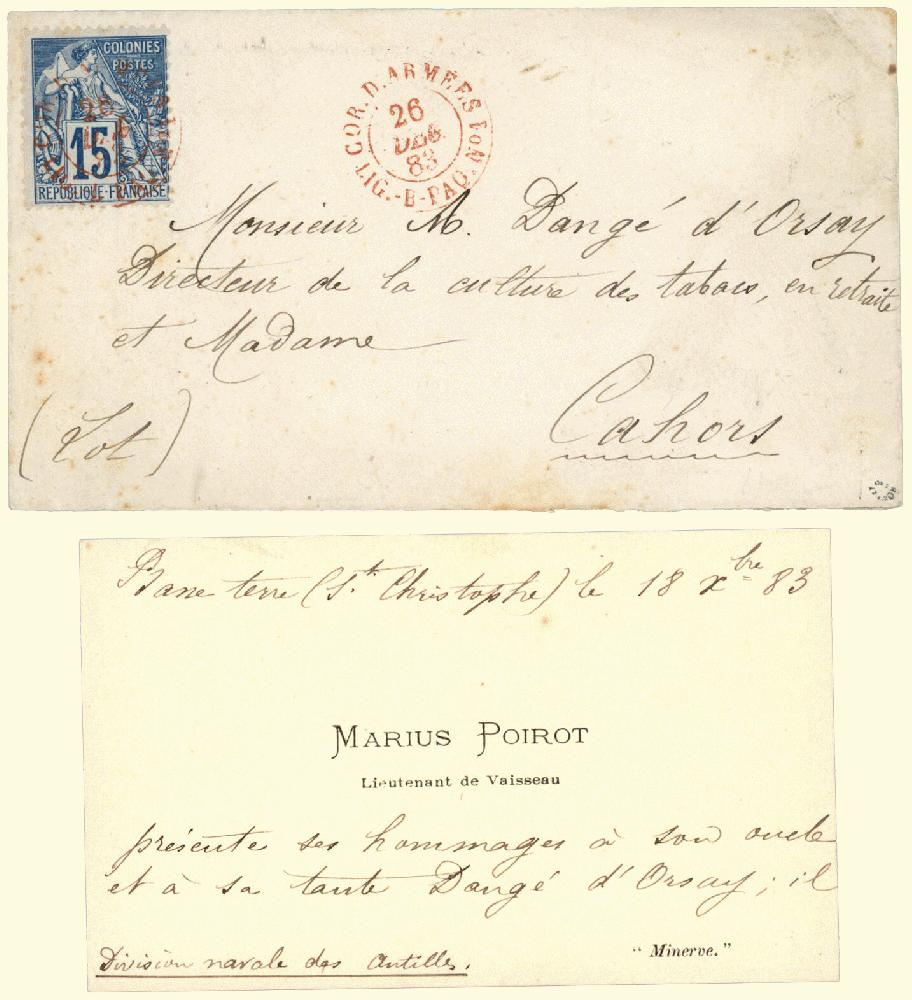 COLONIES
POSTES
15
REPUBLIQUE FRANÇAISE
COR. D. ARMÉES
26
DEC.
83
LIG.-B-PAQ. FON.
Monsieur A. Dangé d'Orsay
Directeur de la culture des tabacs, en retraite
et Madame
Cahors
(Lot)
Basse terre (St. Christophe) le 18 xbre 83
MARIUS POIROT
Lieutenant de Vaisseau
présente ses hommages à son oncle
et à sa tante Dangé d'Orsay; il
"Minerve."
Division navale des Antilles.